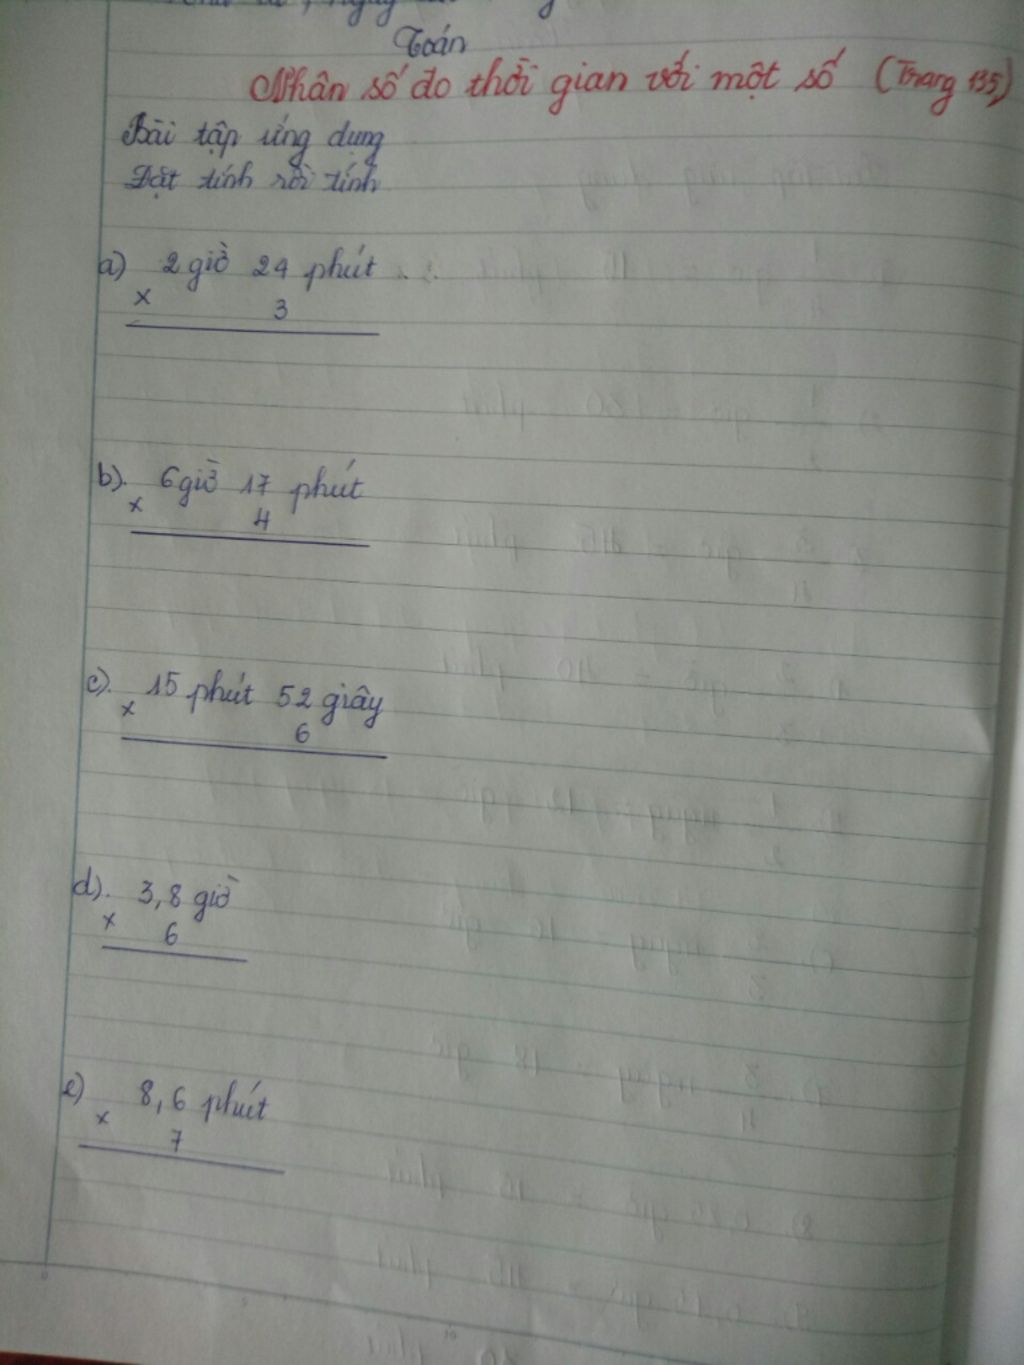 Toán
Nhân số đo thời gian với một số (Trang 135)
Bài tập ứng dụng
Đặt tính rồi tính
a) 2 giờ 24 phút
x 3
b). 6 giờ 17 phút
x 4
c). 15 phút 52 giây
x 6
d). 3,8 giờ
x 6
e) 8,6 phút
x 7